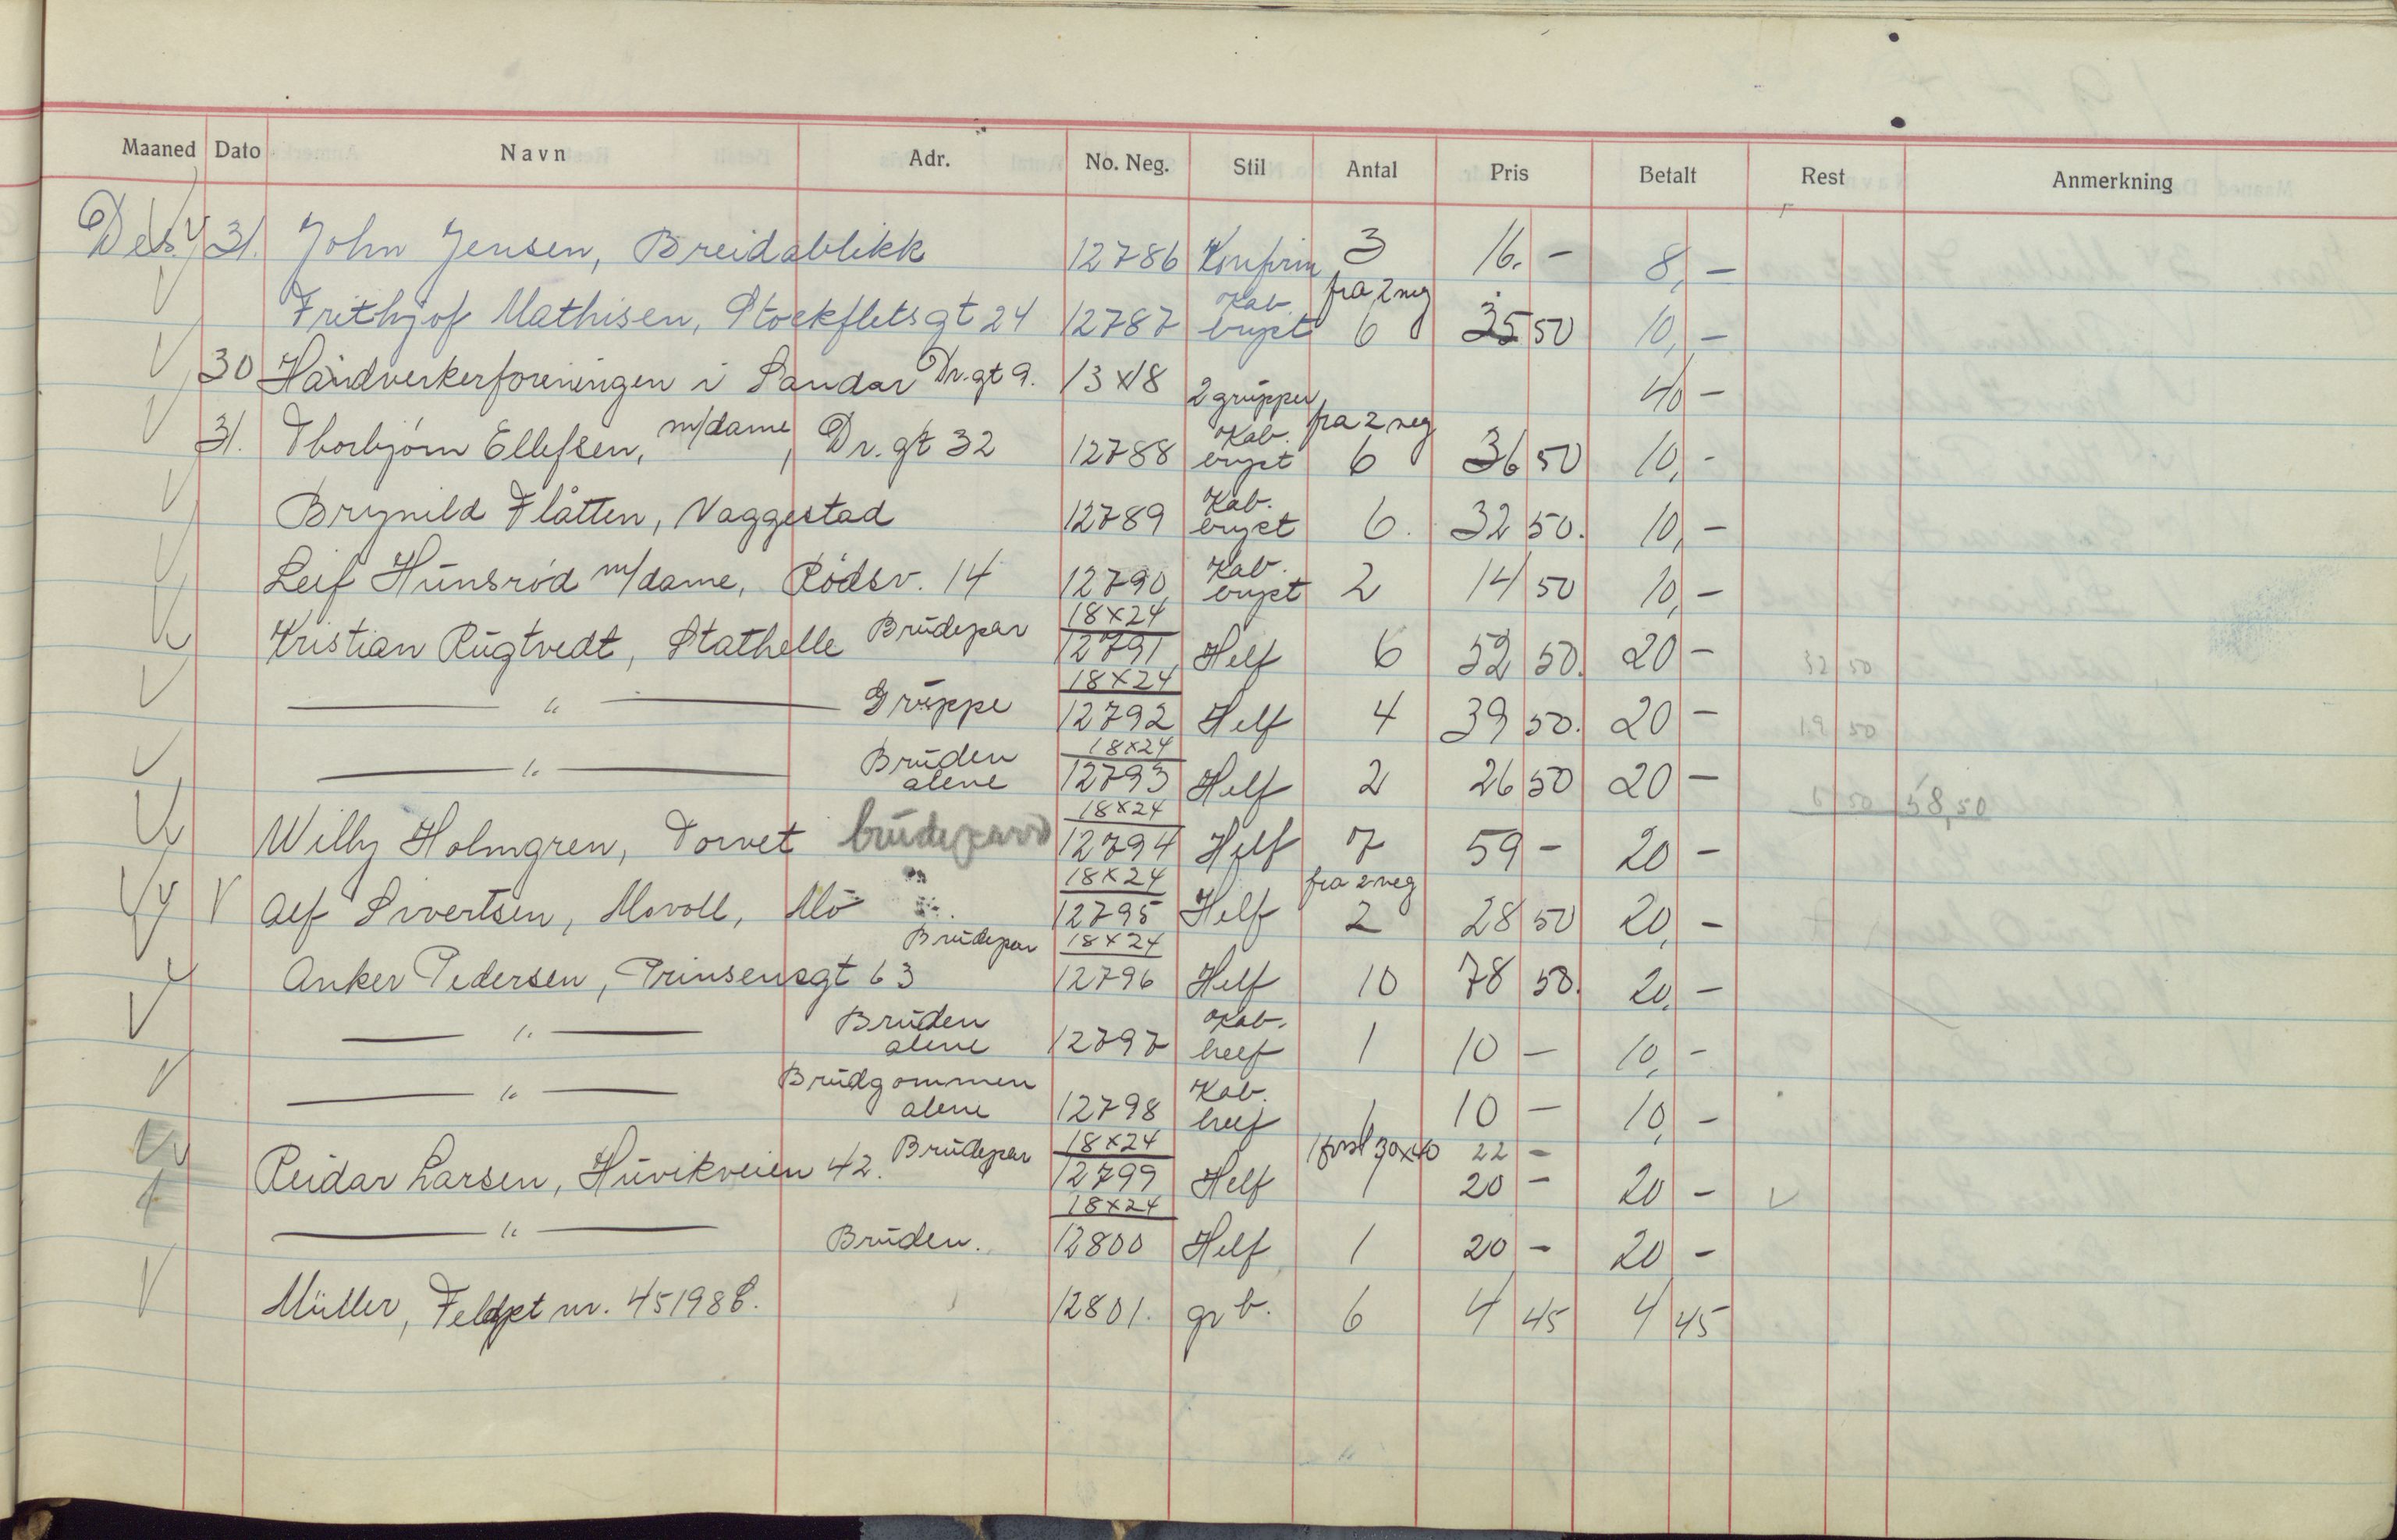 Maaned Dato Navn Adr. No. Neg. Stil Antal Pris Betalt Rest Anmerkning
Des. 31. John Jensen, Breidablikk 12786 Konfirm 3 16. - 8, -
Frithjof Mathisen, Stockfletsgt 24 12787 Kab. bryst fra 2 neg 6 35 50 10, -
30 Håndverkerforeningen i Sandar Dr. gt 9. 13x18 2 grupper 40 -
31. Thorbjørn Ellefsen, m/dame, Dr. gt 32 12788 Kab. bryst fra 2 neg 6 36 50 10, -
Brynild Flåtten, Vaggestad 12789 Kab. bryst 6. 32 50. 10, -
Leif Hunsrød m/dame, Rødsv. 14 12790 Kab. bryst 2 14 50 10, -
Kristian Rugtvedt, Stathelle Brudepar 18x24 12791 Helf 6 52 50. 20 - 32 50
— " — Gruppe 18x24 12792 Helf 4 39 50. 20 - 19 50
— " — Bruden alene 18x24 12793 Helf 2 26 50 20 - 6 50 58,50
Willy Holmgren, Torvet brudepar 18x24 12794 Helf 7 59 - 20 -
Alf Sivertsen, Movoll, Mo 18x24 12795 Helf fra 2 neg 2 28 50 20, -
Anker Pedersen, Prinsensgt 63 Brudepar 18x24 12796 Helf 10 78 50. 20, -
— " — Bruden alene 12797 Kab. helf 1 10 - 10, -
— " — Brudgommen alene 12798 Kab. helf 1 10 - 10, -
1 forst 30x40 22 -
Reidar Larsen, Huvikveien 42. Brudepar 18x24 12799 Helf 1 20 - 20 -
— " — Bruden. 18x24 12800 Helf 1 20 - 20 -
Müller, Feldpt nr. 45198 12801. gr b. 6 4 45 4 45